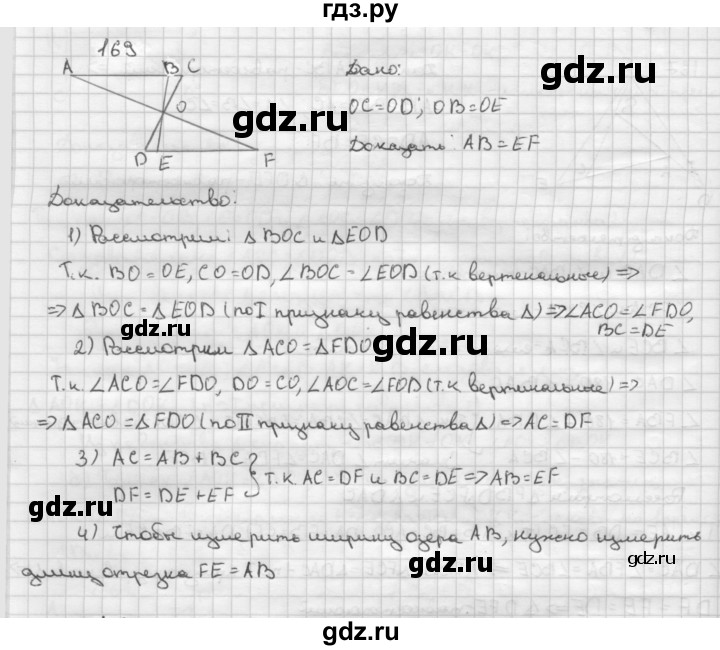 гдз.ру
169
A B C
O
D E F
Дано:
OC=OD; OB=OE
Доказать: AB=EF
Доказательство:
1) Рассмотрим: △ BOC и △EOD
Т.к. BO=OE, CO=OD, ∠BOC=∠EOD (т.к вертекальные) =>
=> △ BOC=△ EOD (по I признаку равенства △) => ∠ACO=∠FDO,
BC=DE
2) Рассмотрим △ ACO=△FDO
Т.к. ∠ACO=∠FDO, DO=CO, ∠AOC=∠FOD (т.к вертекальные) =>
=> △ ACO=△FDO (по II признаку равенства △) => AC=DF
3) AC=AB+BC
DF=DE+EF
} т.к AC=DF и BC=DE => AB=EF
4) Чтобы измерить ширину озера AB, нужно измерить
длину отрезка FE=AB
gdz.ru
gdz.ru
gdz.ru
gdz.ru
gdz.ru
gdz.ru
gdz.ru
gdz.ru